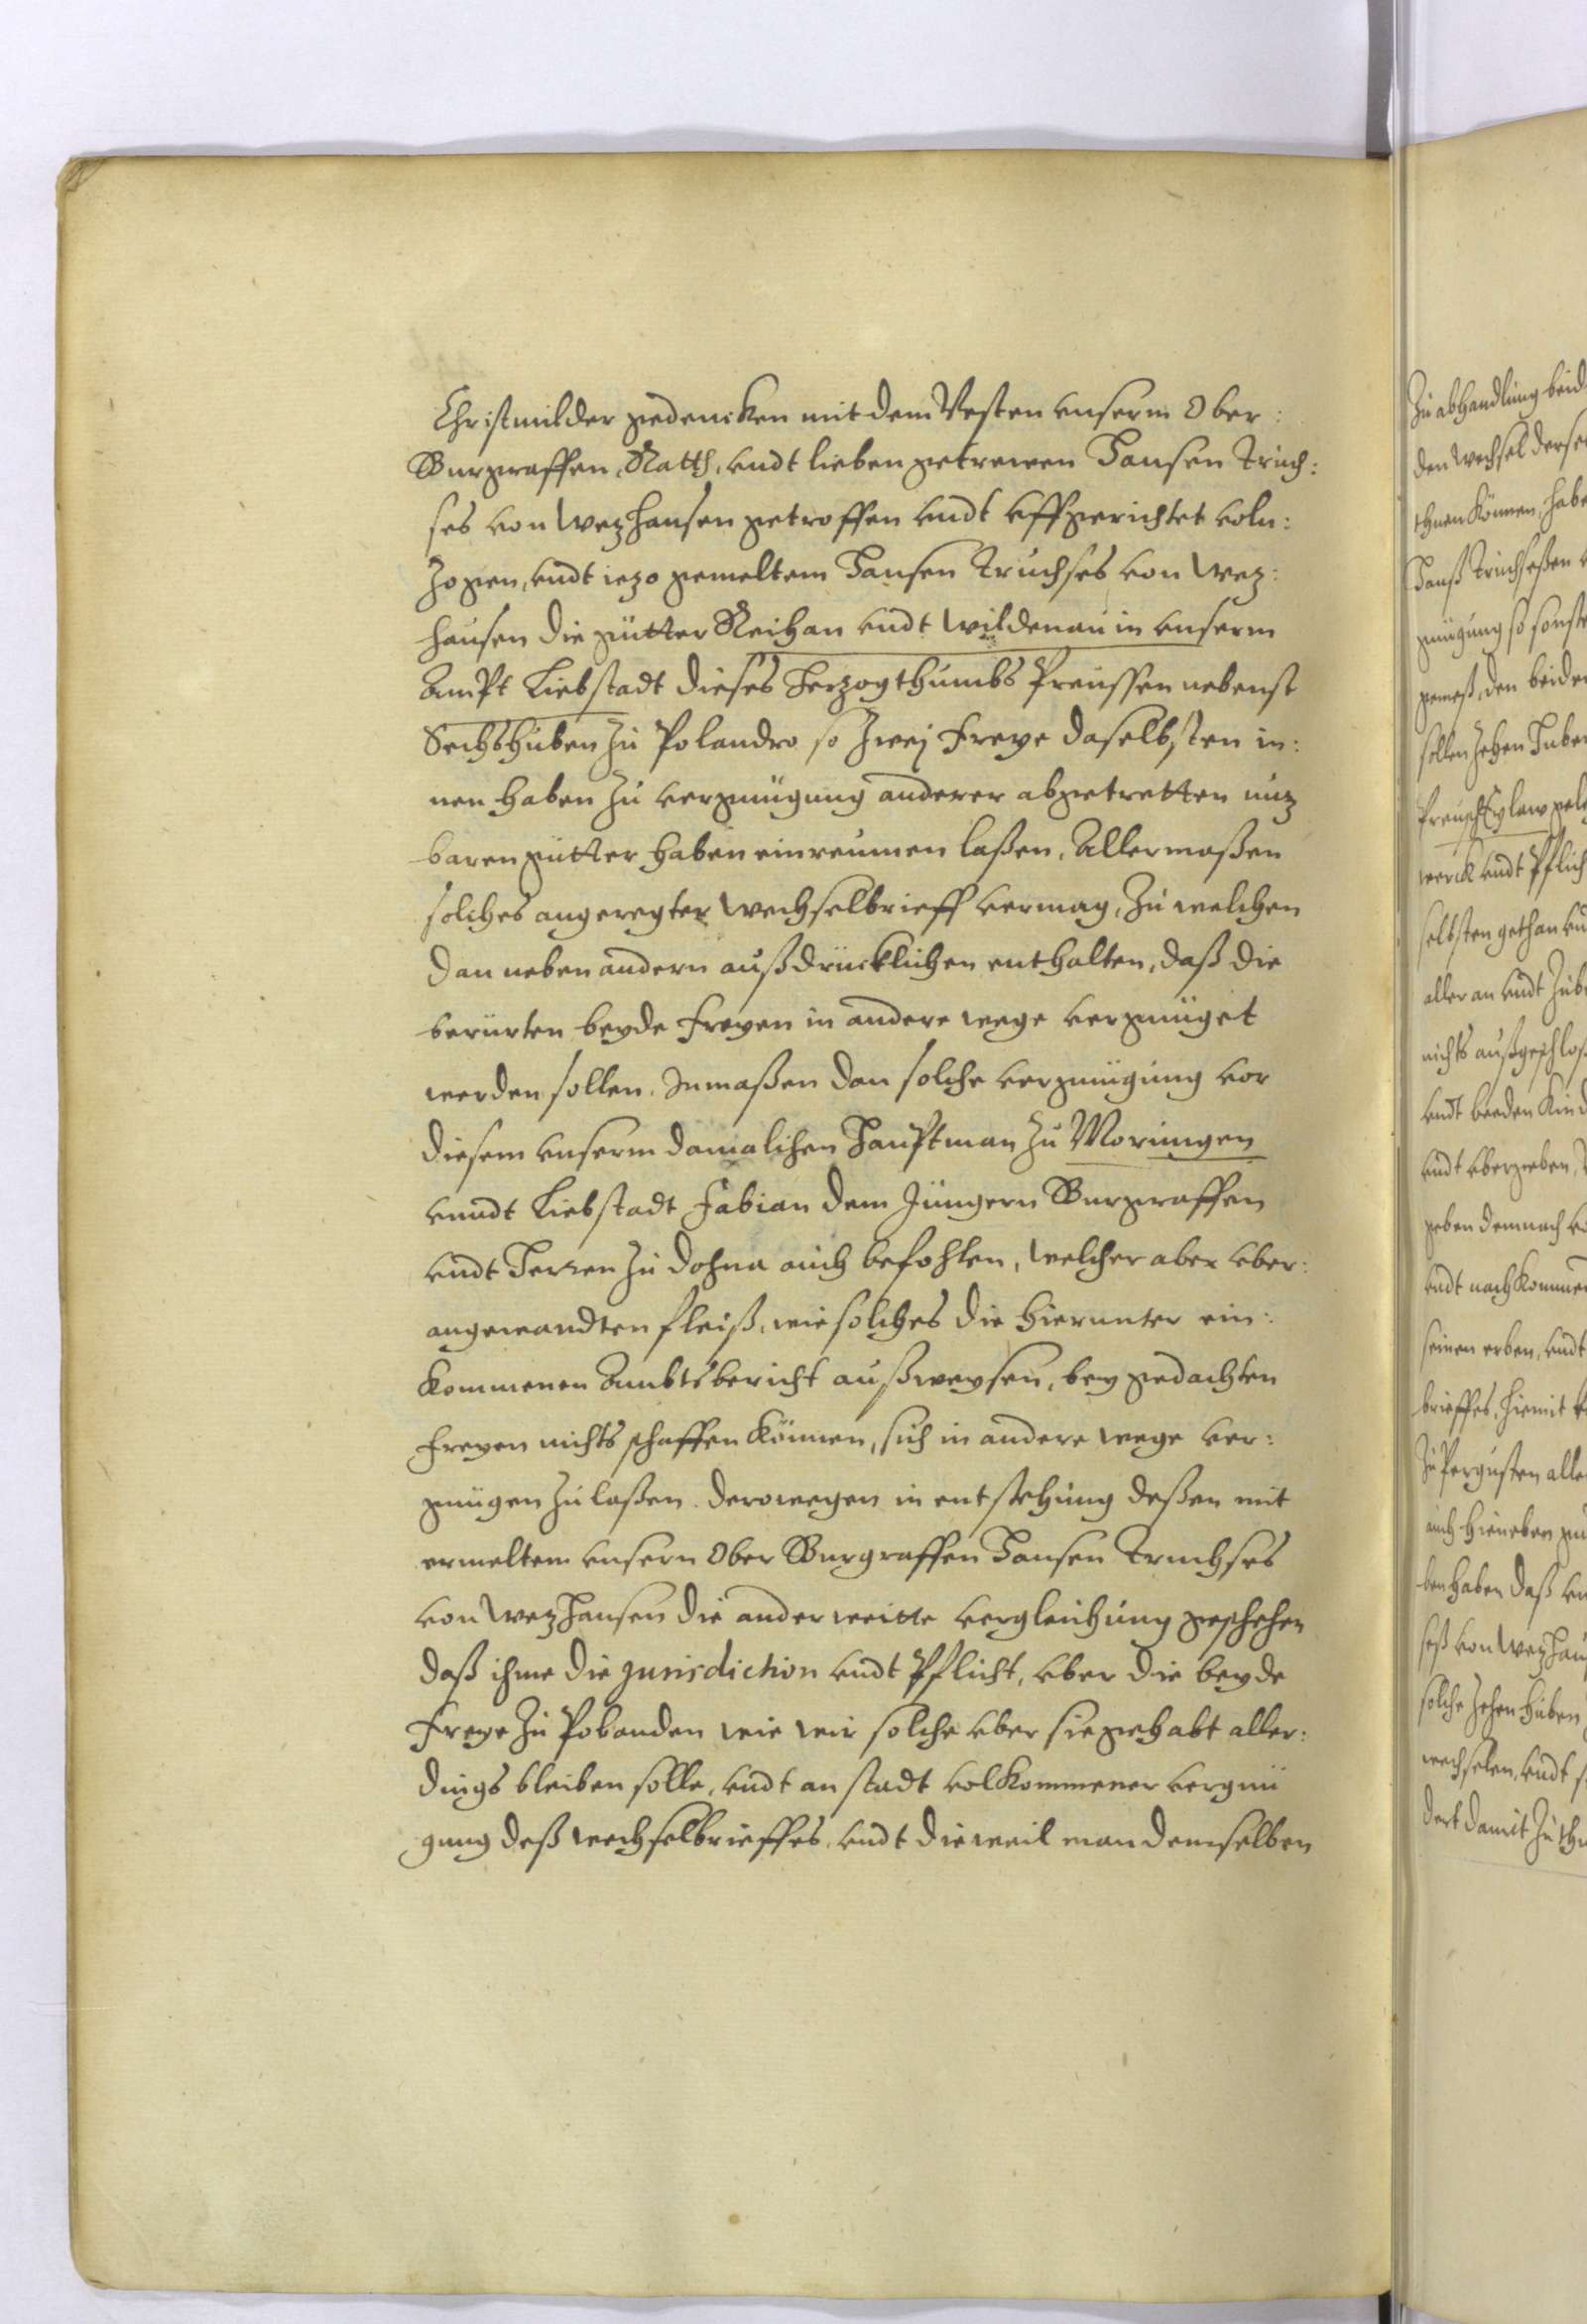 Christmilder gedencken mit dem Vesten unserm Ober:
Burggraffen, Rath, undt lieben getrewen Hansen Truch:
ses von Wezhausen getroffen undt uffgerichtet voln:
zogen, undt iezo gemeltem Hansen Truchses von Wez:
hausen die gütter Reichau undt Wildenau in unserm
Ampt Liebstadt dieses Herzogthumbs Preussen nebenst
Sechs huben zu Polandro so zwej Freye daselbsten in:
nen haben zu vergnügung anderer abgetretten nuz
baren gütter haben einreumen laßen, Allermaßen
solches angeregter Wechselbrieff vermag, Zu welchen
dan neben andern außdrücklichen enthalten, daß die
berürten beyde freyen in andere wege vergnüget
werden sollen. Inmaßen dan solche vergnügung vor
diesem unserm damalichen Hauptman zu Morungen
unndt Liebstadt Fabian dem Jüngern Burggraffen
undt Herren zu Dohna auch befohlen, welcher aber uber:
angewandten fleiß, wie solches die hierunter ein:
kommenen Ambtsbericht außweysen, bey gedachten
freyen nichts schaffen können, sich in andere wege ver:
gnügen zu laßen. derowegen in entstehung deßen mit
ermeltem unsern Ober Burgraffen Hansen Truchses
von Wezhausen die anderweitte vergleichung geschehen
daß ihme die Jurisdiction undt Pflicht, uber die beyde
Freye zu Pobanden wie wir solche uber sie gehabt aller:
dings bleiben solle, undt an stadt volkommener vergnü
gung deß wechselbrieffes undt dieweil man demselben
Zu abhandlung beid
den Wechsel derse
thuen können, habe
Hanß Truchseßen
gnügung so sonst
gemeß, den beiden
sollen zehen Hube
Preusch Eylaw gele
werck undt Pflich
selbsten gethan
aller an undt Zub
nichts außgeschlos
undt beeden Kind
undt ubergeben,
geben demnach
undt nachkommen
seinen erben, undt
brieffes, hiemit
Zu Pergusten alle
auch hieneben
ben haben daß
seß von Wezhau
solche zehen huben
wechselen, undt
dert damit zu th